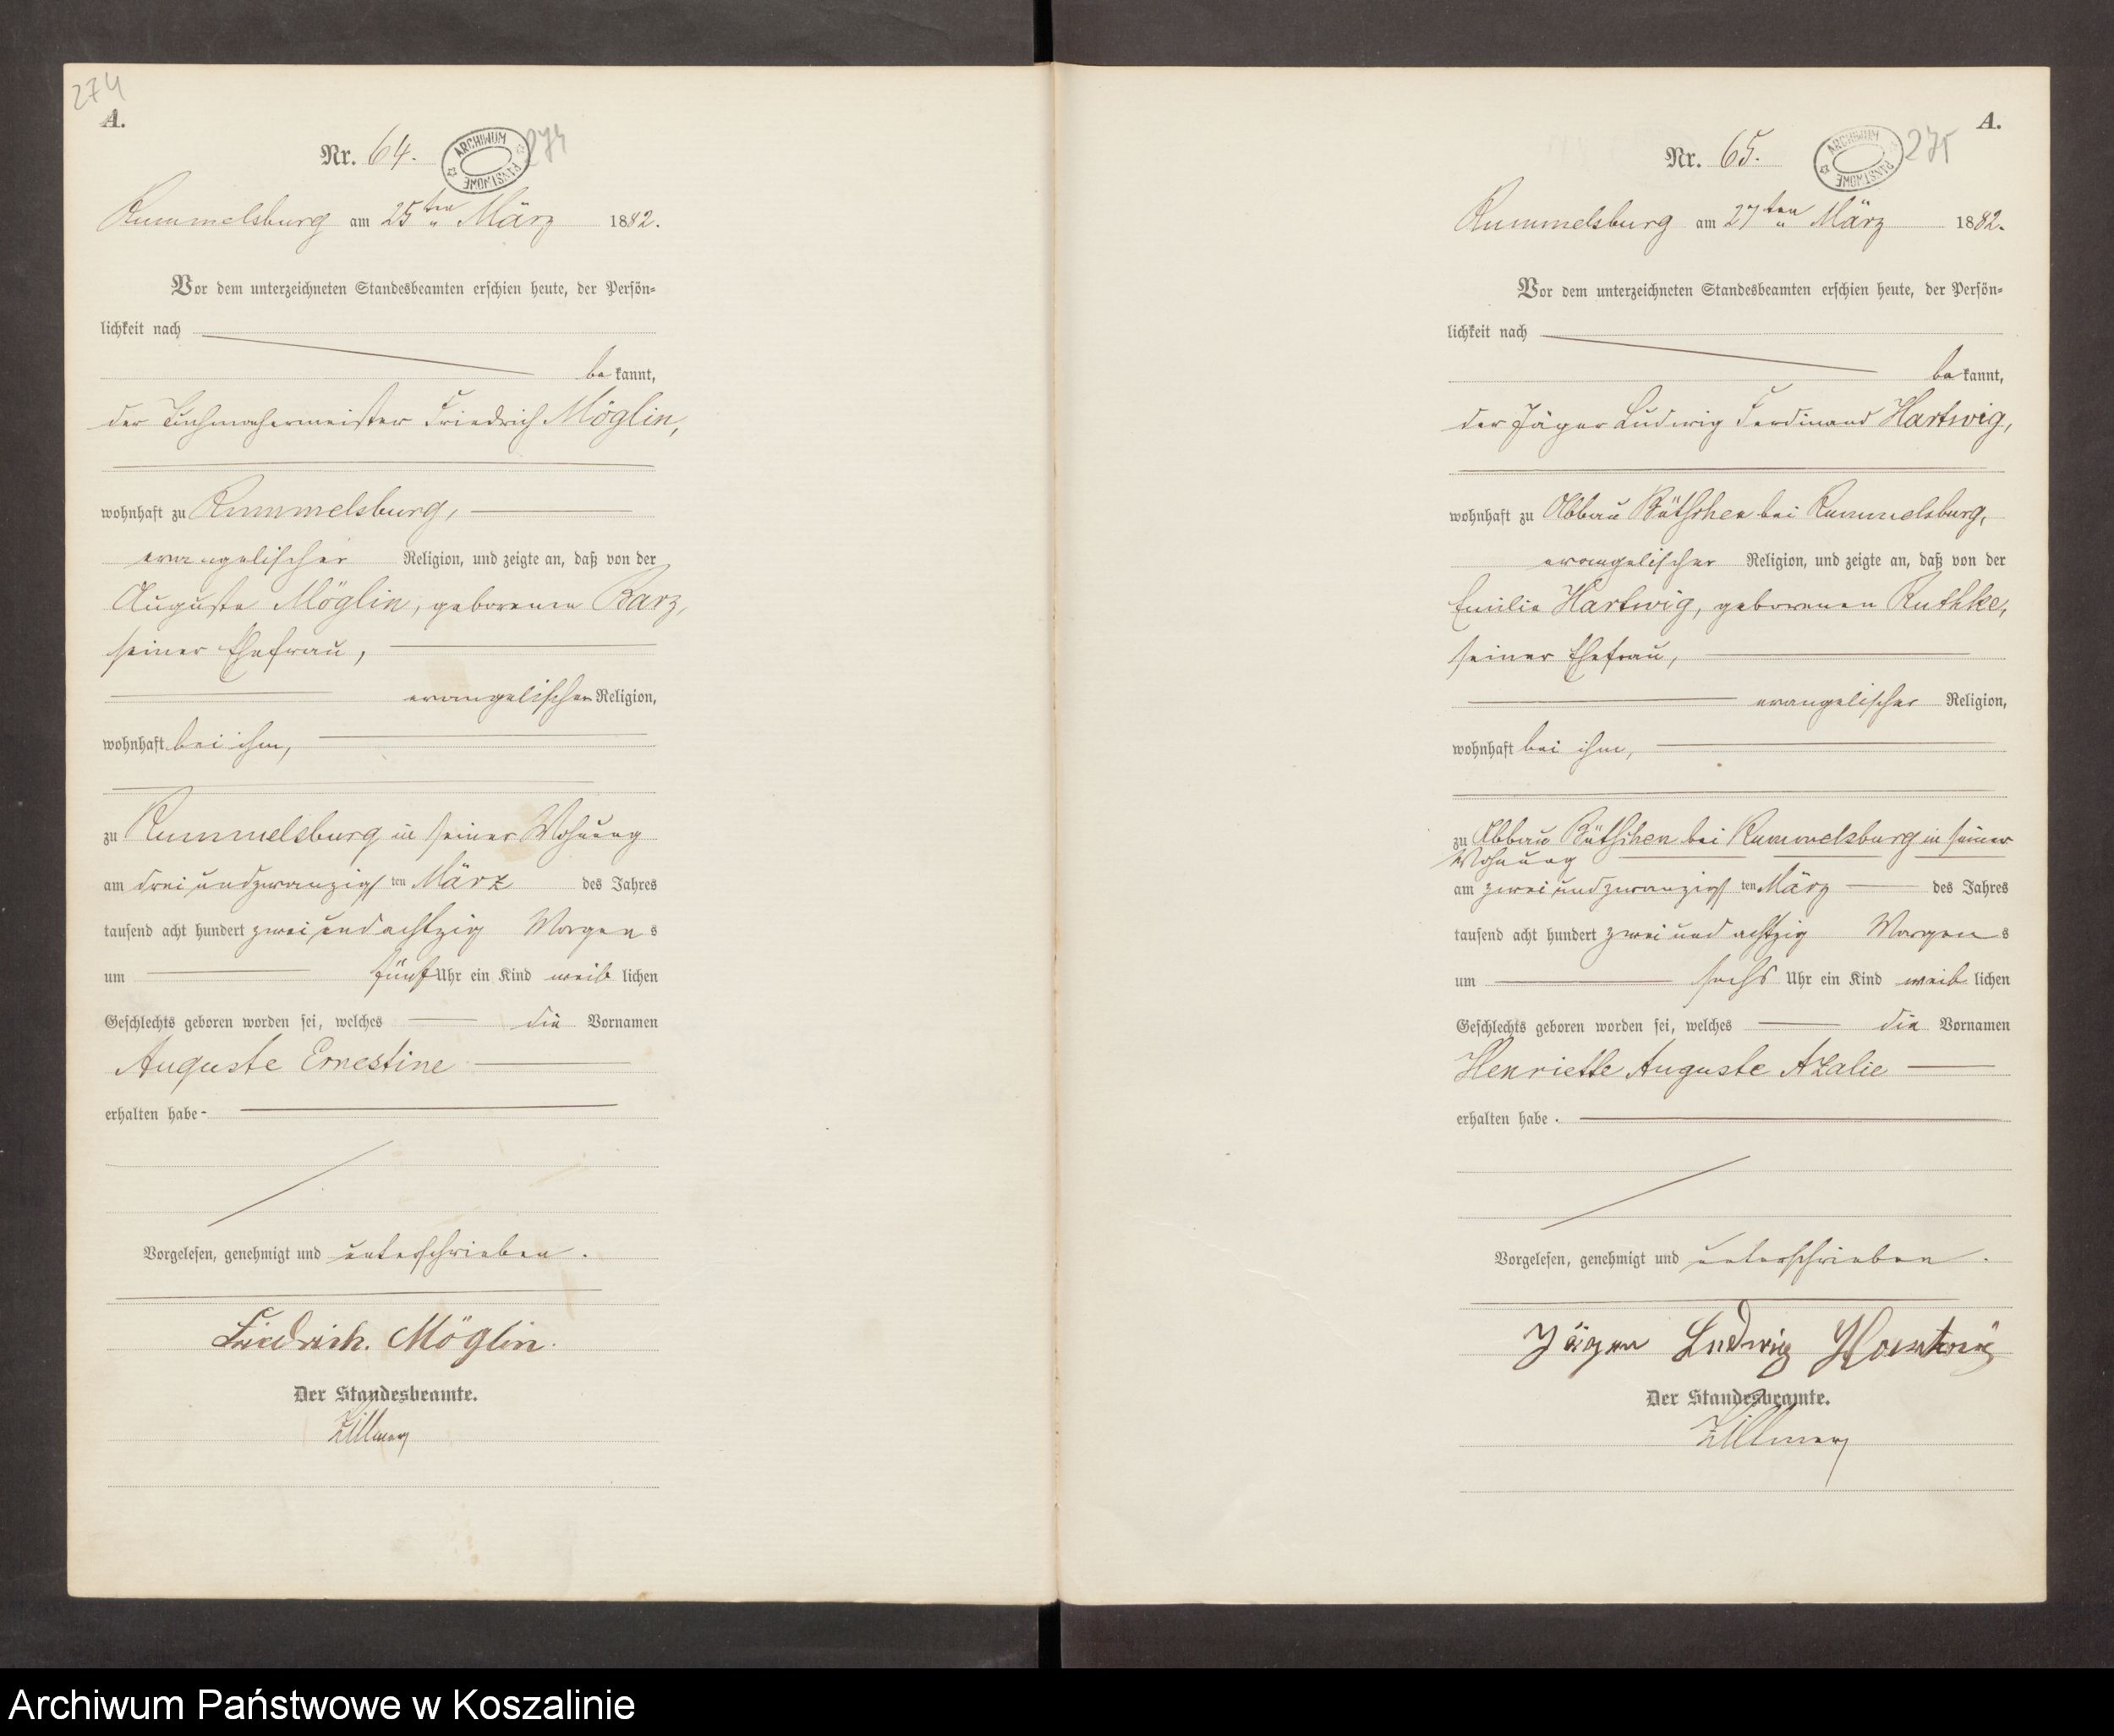 274
A.
Nr. 64.
ARCHIWUM PAŃSTWOWE
274
Rummelsburg am 25ten März 1882.
Vor dem unterzeichneten Standesbeamten erschien heute, der Persön-
lichkeit nach
bekannt,
der Tuchmachermeister Friedrich Möglin,
wohnhaft zu Rummelsburg,
evangelischer Religion, und zeigte an, daß von der
Auguste Möglin, geborenen Barz,
seiner Ehefrau,
evangelischer Religion,
wohnhaft bei ihm,
zu Rummelsburg in seiner Wohnung
am drei und zwanzigsten März des Jahres
tausend acht hundert zwei und achtzig Morgens
um fünf Uhr ein Kind weiblichen
Geschlechts geboren worden sei, welches die Vornamen
Auguste Ernestine
erhalten habe.
Vorgelesen, genehmigt und unterschrieben.
Friedrich. Möglin.
Der Standesbeamte.
Zillmer
A.
Nr. 65.
ARCHIWUM PAŃSTWOWE
275
Rummelsburg am 27ten März 1882.
Vor dem unterzeichneten Standesbeamten erschien heute, der Persön-
lichkeit nach
bekannt,
der Jäger Ludwig Ferdinand Hartwig,
wohnhaft zu Abbau bei Rummelsburg,
evangelischer Religion, und zeigte an, daß von der
Emilie Hartwig, geborenen Ruthke,
seiner Ehefrau,
evangelischer Religion,
wohnhaft bei ihm,
zu Abbau bei Rummelsburg in seiner
Wohnung
am zwei und zwanzigsten März des Jahres
tausend acht hundert zwei und achtzig Morgens
um sechs Uhr ein Kind weiblichen
Geschlechts geboren worden sei, welches die Vornamen
Henriette Auguste Azalie
erhalten habe.
Vorgelesen, genehmigt und unterschrieben.
Jäger Ludwig Hartwig
Der Standesbeamte.
Zillmer
Archiwum Państwowe w Koszalinie